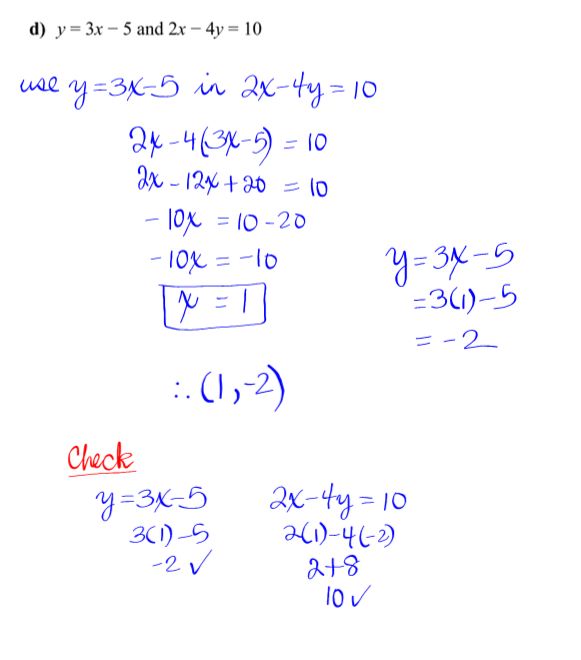 d) y = 3x – 5 and 2x – 4y = 10
use y=3x-5 in 2x-4y=10
2x-4(3x-5) = 10
2x-12x+20 = 10
-10x = 10-20
-10x = -10
x = 1
y=3x-5
=3(1)-5
= -2
∴ (1,-2)
Check
y=3x-5
3(1)-5
-2 ✓
2x-4y=10
2(1)-4(-2)
2+8
10 ✓